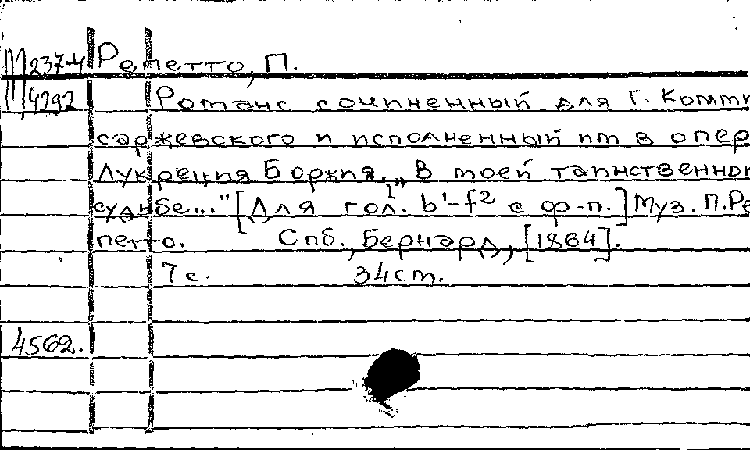 М 237-4 Репетто, П.
М 4292 Романс сочиненный для Г. Комми
саржевского и исполненный им в опер
Лукреция Боржия. „В моей таинственной
судьбе..." [Для гол. b¹-f² с ф-п.] Муз. П. Ре
петто. Спб., Бернард, [1864].
7 с. 34 см.
4562.